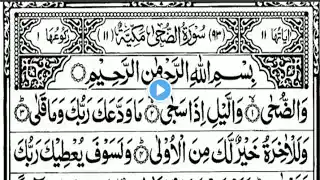 اٰیاتھا ١١ (٩٣) سُوْرَةُ الضُّحٰى مَكِّيَّةٌ (١١) رکوعھا ١
بِسْمِ اللّٰهِ الرَّحْمٰنِ الرَّحِيْمِ
وَالضُّحٰى ۙ﴿١﴾ وَالَّيْلِ اِذَا سَجٰى ۙ﴿٢﴾ مَا وَدَّعَكَ رَبُّكَ وَمَا قَلٰى ؕ﴿٣﴾
وَلَلْاٰخِرَةُ خَيْرٌ لَّكَ مِنَ الْاُوْلٰى ؕ﴿٤﴾ وَلَسَوْفَ يُعْطِيْكَ رَبُّكَ